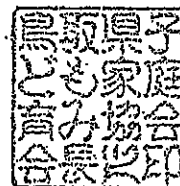 鳥取県子
ども家庭
育み協会
会長之印